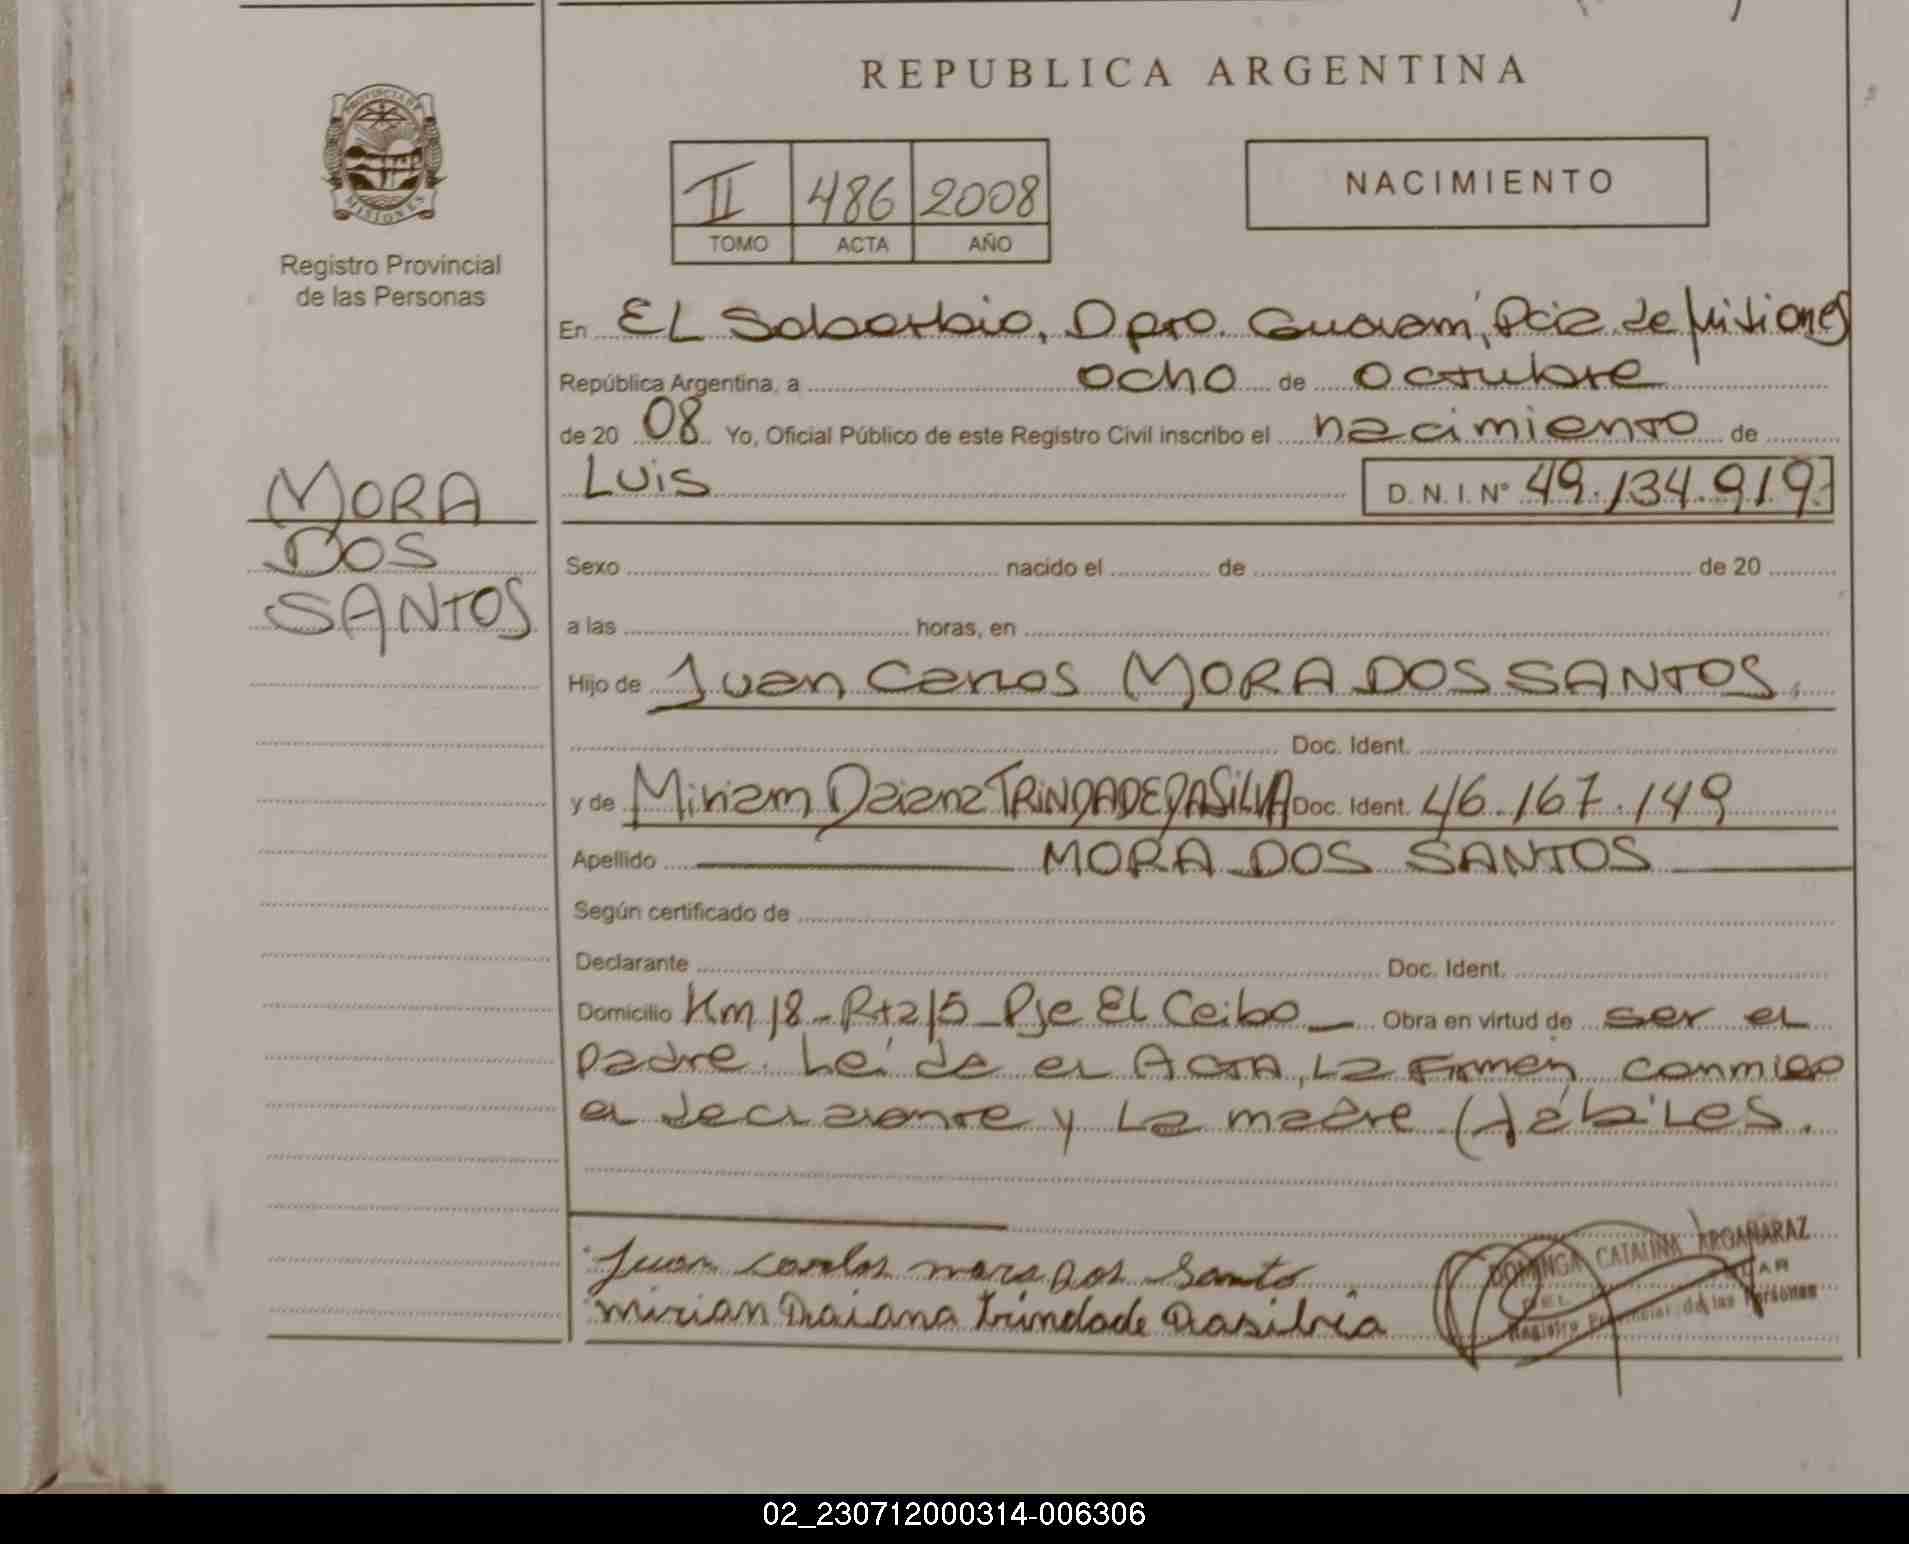 REPUBLICA ARGENTINA
PROVINCIA DE MISIONES
Registro Provincial
de las Personas
II 486 2008
TOMO ACTA AÑO
NACIMIENTO
En EL Soberbio, Dpto. Guaraní, Pcia de Misiones
República Argentina, a ocho de octubre
de 20 08 Yo, Oficial Público de este Registro Civil inscribo el nacimiento de
Luis D. N. I. Nº 49.134.919
MORA
DOS
SANTOS
Sexo nacido el de de 20
a las horas, en
Hijo de Juan Carlos MORA DOS SANTOS.
Doc. Ident.
y de Miriam Daiana TRINDADE DA SILVA Doc. Ident. 46.167.149
Apellido MORA DOS SANTOS
Según certificado de
Declarante Doc. Ident.
Domicilio Km 18 - Rta 15 - Pje El Ceibo - Obra en virtud de ser el
padre. Leída el ACTA, La Firman conmigo
el declarante y La madre hábiles.
Juan Carlos mora Dos Santo
mirian Daiana trindade Dasilvia
DOMINGA CATALINA ARGAÑARAZ
Registro Provincial de las Personas
02_230712000314-006306